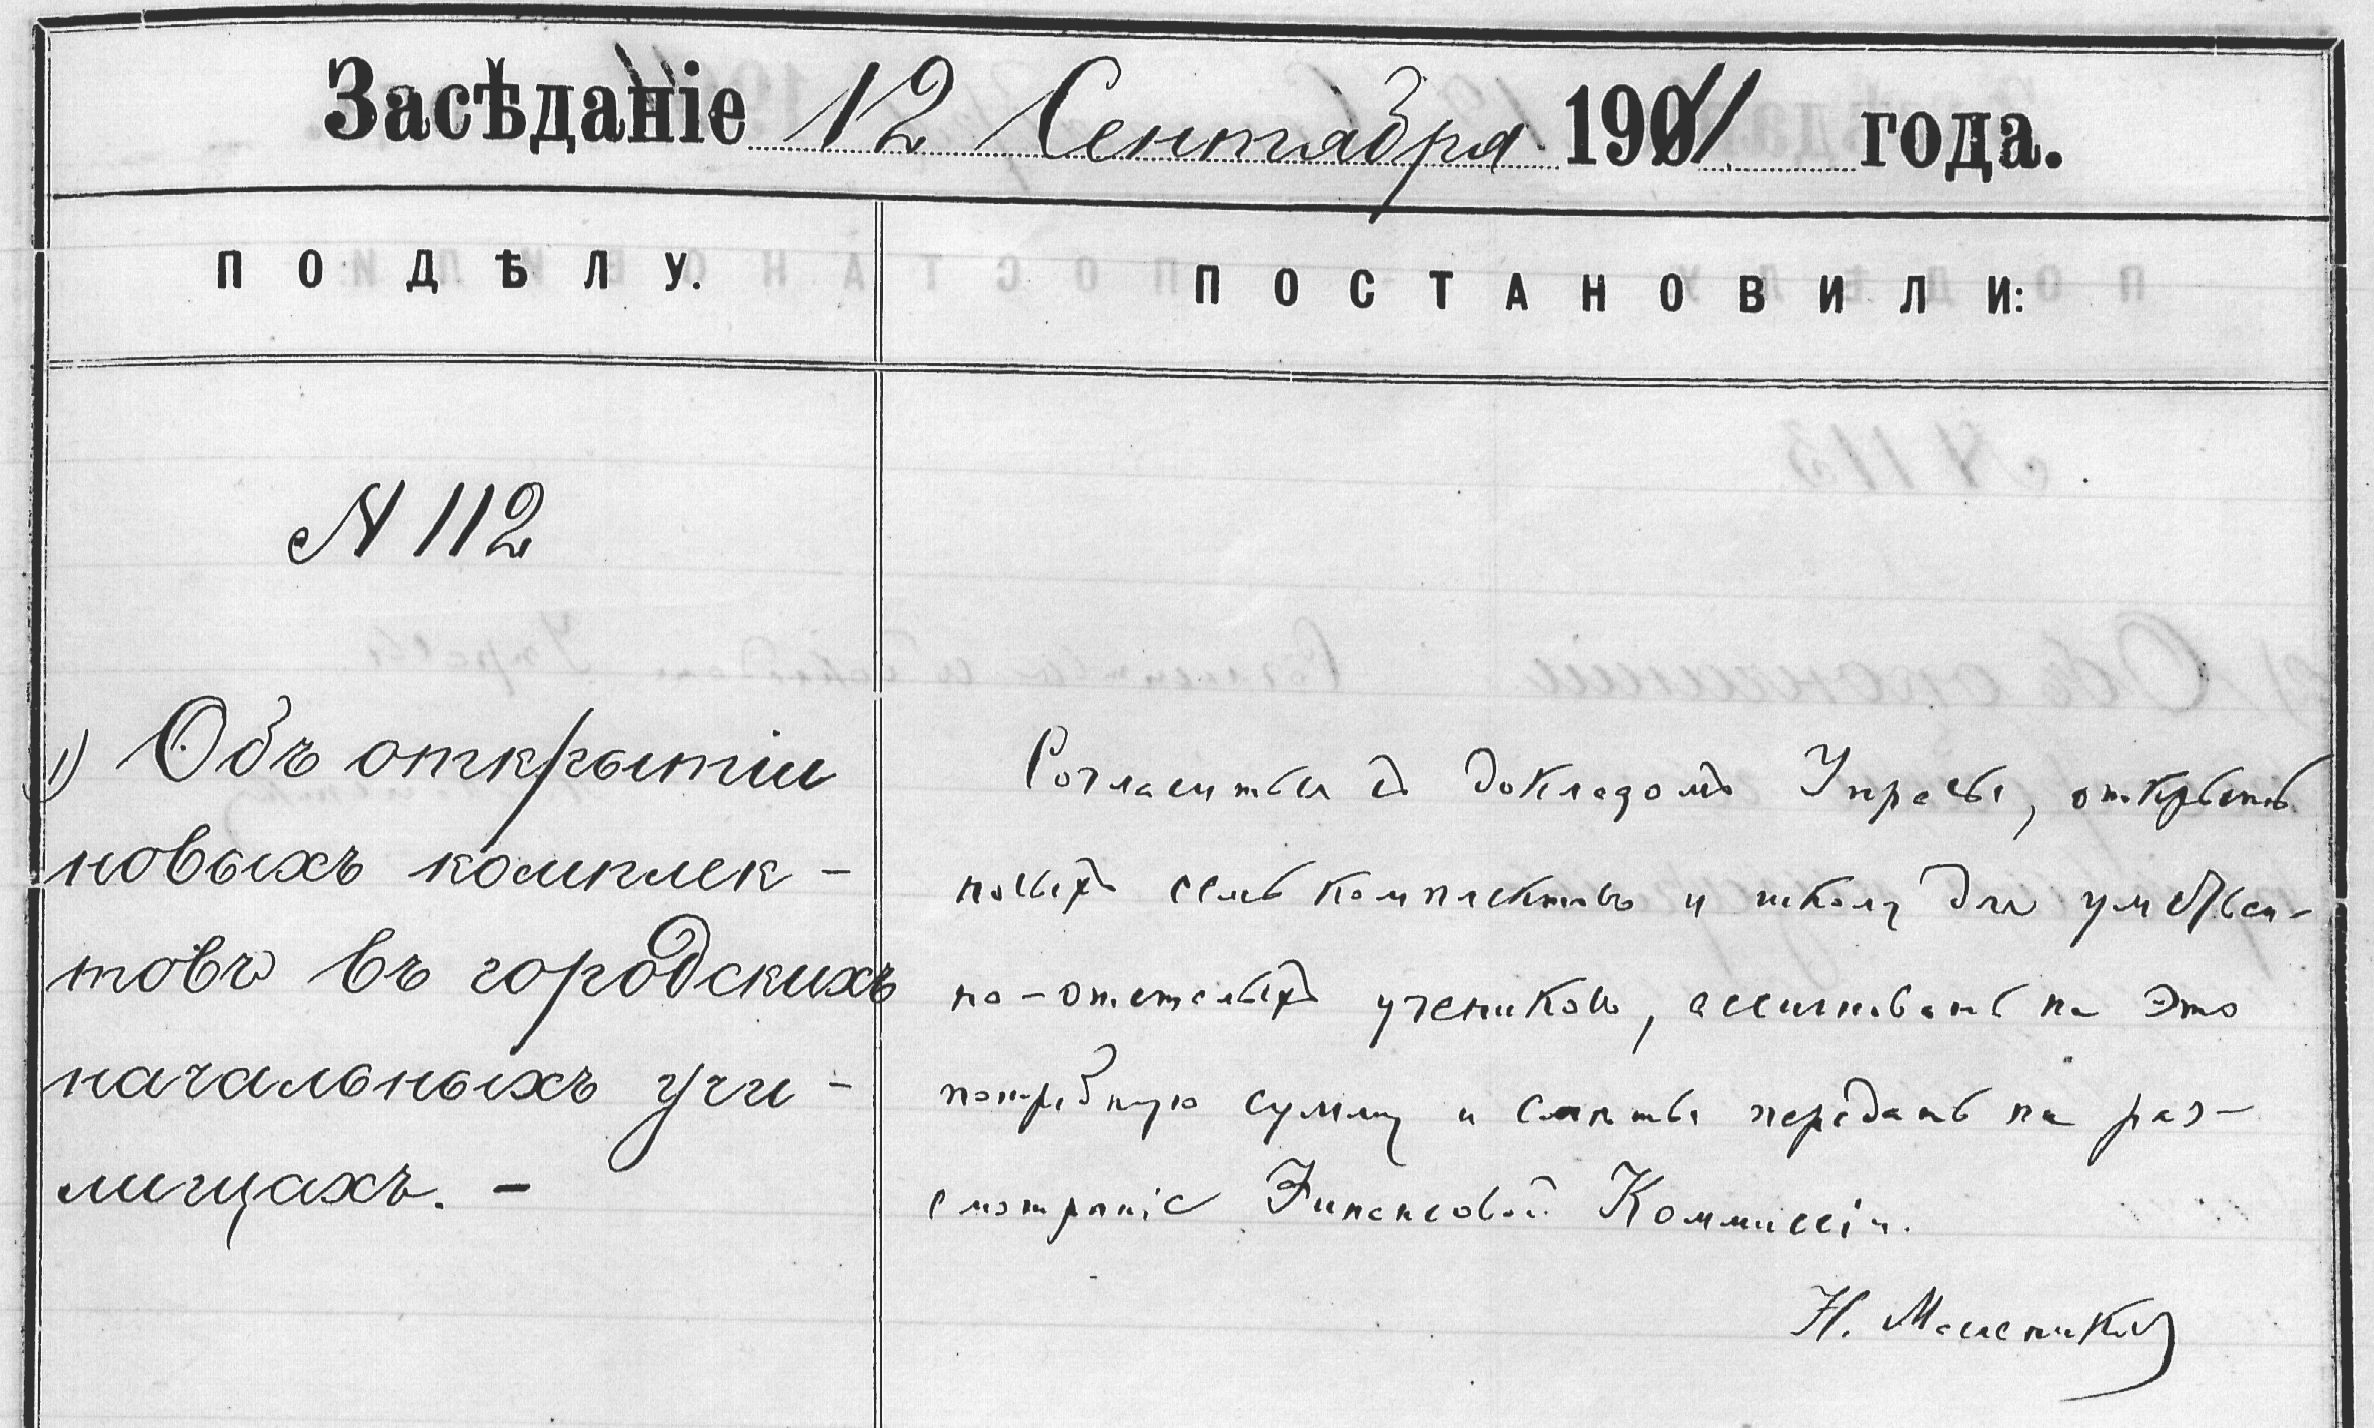 Засѣданіе 12 Сентября 1911 года.
ПО ДѢЛУ.
ПОСТАНОВИЛИ:
№ 112
1) Объ открытіи
новыхъ комплек-
товъ въ городскихъ
начальныхъ учи-
лищахъ. -
Согласиться съ докладомъ Управы, открыть
новыхъ семь комплектовъ и школу для умствен-
но-отсталыхъ учениковъ, ассигновать на это
потребную сумму и смѣты передать на раз-
смотрѣніе Финансовой Коммиссіи.
Н. Масленников